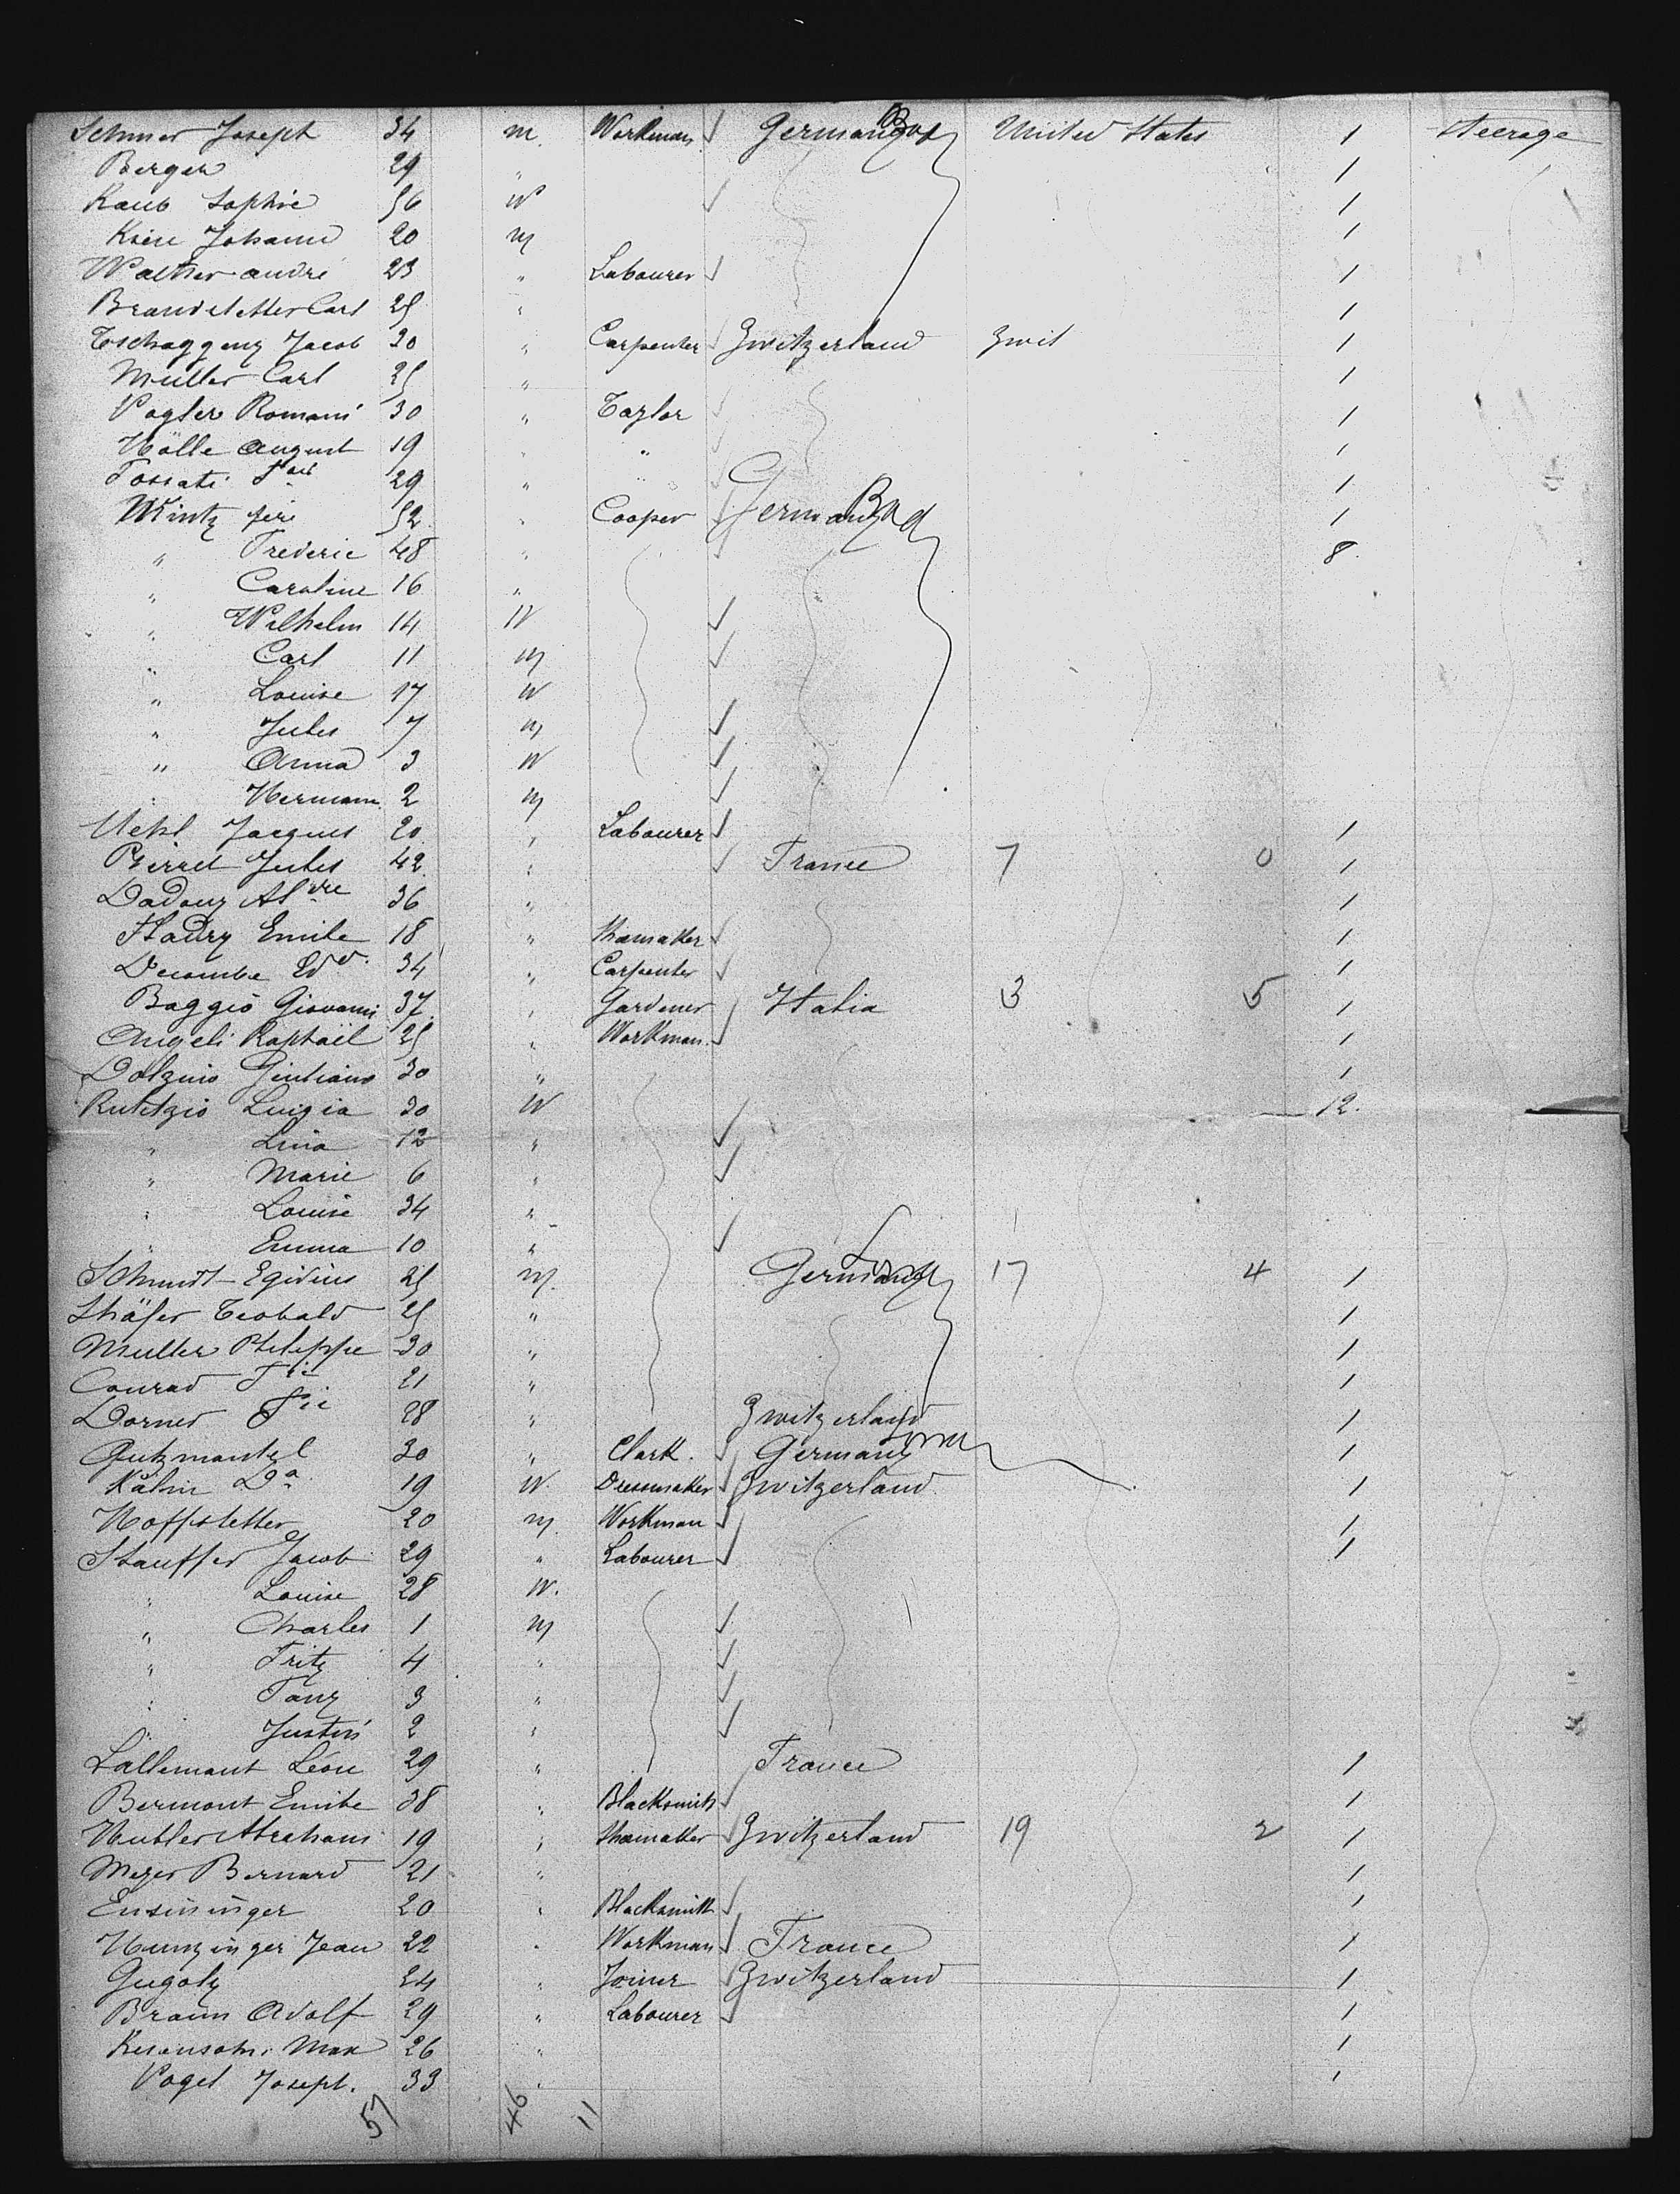 Schner Joseph 34 m. Workman Germany Bad United States 1 Steerage
Berger 29 " 1
Raub Sophie 56 W 1
Krieu Johann 20 m 1
Walther André 23 " Labourer 1
Brandstetter Carl 25 " 1
Tschaggeny Jacob 30 " Carpenter Zwitzerland Zwit 1
Muller Carl 25 " 1
Vogler Romani 30 " Taylor 1
Hölle August 19 " " 1
Tossati 29 " 1
Wintz père 52 " Cooper Germany Bad 1
" Frederic 48 " 8
" Caroline 16 "
" Wilhelm 14 W
" Carl 11 m
" Louise 17 W
" Jules 7 m
" Anna 3 W
" Hermann 2 m
Uehl Jacques 20 " Labourer 1
Pierret Jules 42 " France 7 0 1
Dadouy Aldre 36 " 1
Hadry Emile 18 " Shomaker 1
Decombe Edd. 34 " Carpenter 1
Baggio Giovanni 37 " Gardener Italia 3 5 1
Angeli Raphaël 25 " Workman 1
Dolzino Giuliano 30 " 1
Rutitzio Luigia 30 W 12.
" Lina 12 "
" Marie 6 "
" Louise 34 "
" Emma 10 "
Schmidt Egidius 25 m. Germany 17 4 1
Shäfer Teobald 25 " 1
Muller Philippe 30 " 1
Conrad 21 " 1
Dorner 28 " Zwitzerland 1
Gutzmantel 30 " Clark. Germany 1
Kälin Da 19 W. Dressmaker Zwitzerland 1
Hoffstetter 20 m. Workman 1
Stauffer Jacob 29 " Labourer 1
" Louise 28 W.
" Charles 1 m
" Fritz 4 "
" Fany 3 "
" Justin 2 "
Lallemant Léon 29 " France 1
Bermont Emile 38 " Blacksmith 1
Hubler Abraham 19 " Shomaker Zwitzerland 19 2 1
Meyer Bernard 21 " 1
Ensininger 20 " Blacksmith 1
Hunzinger Jean 22 " Workman France 1
Gugoly 24 " Joiner Zwitzerland 1
Braun Adolf 29 " Labourer 1
Max 26 " 1
Vogel Joseph. 33 " 1
57 46 11